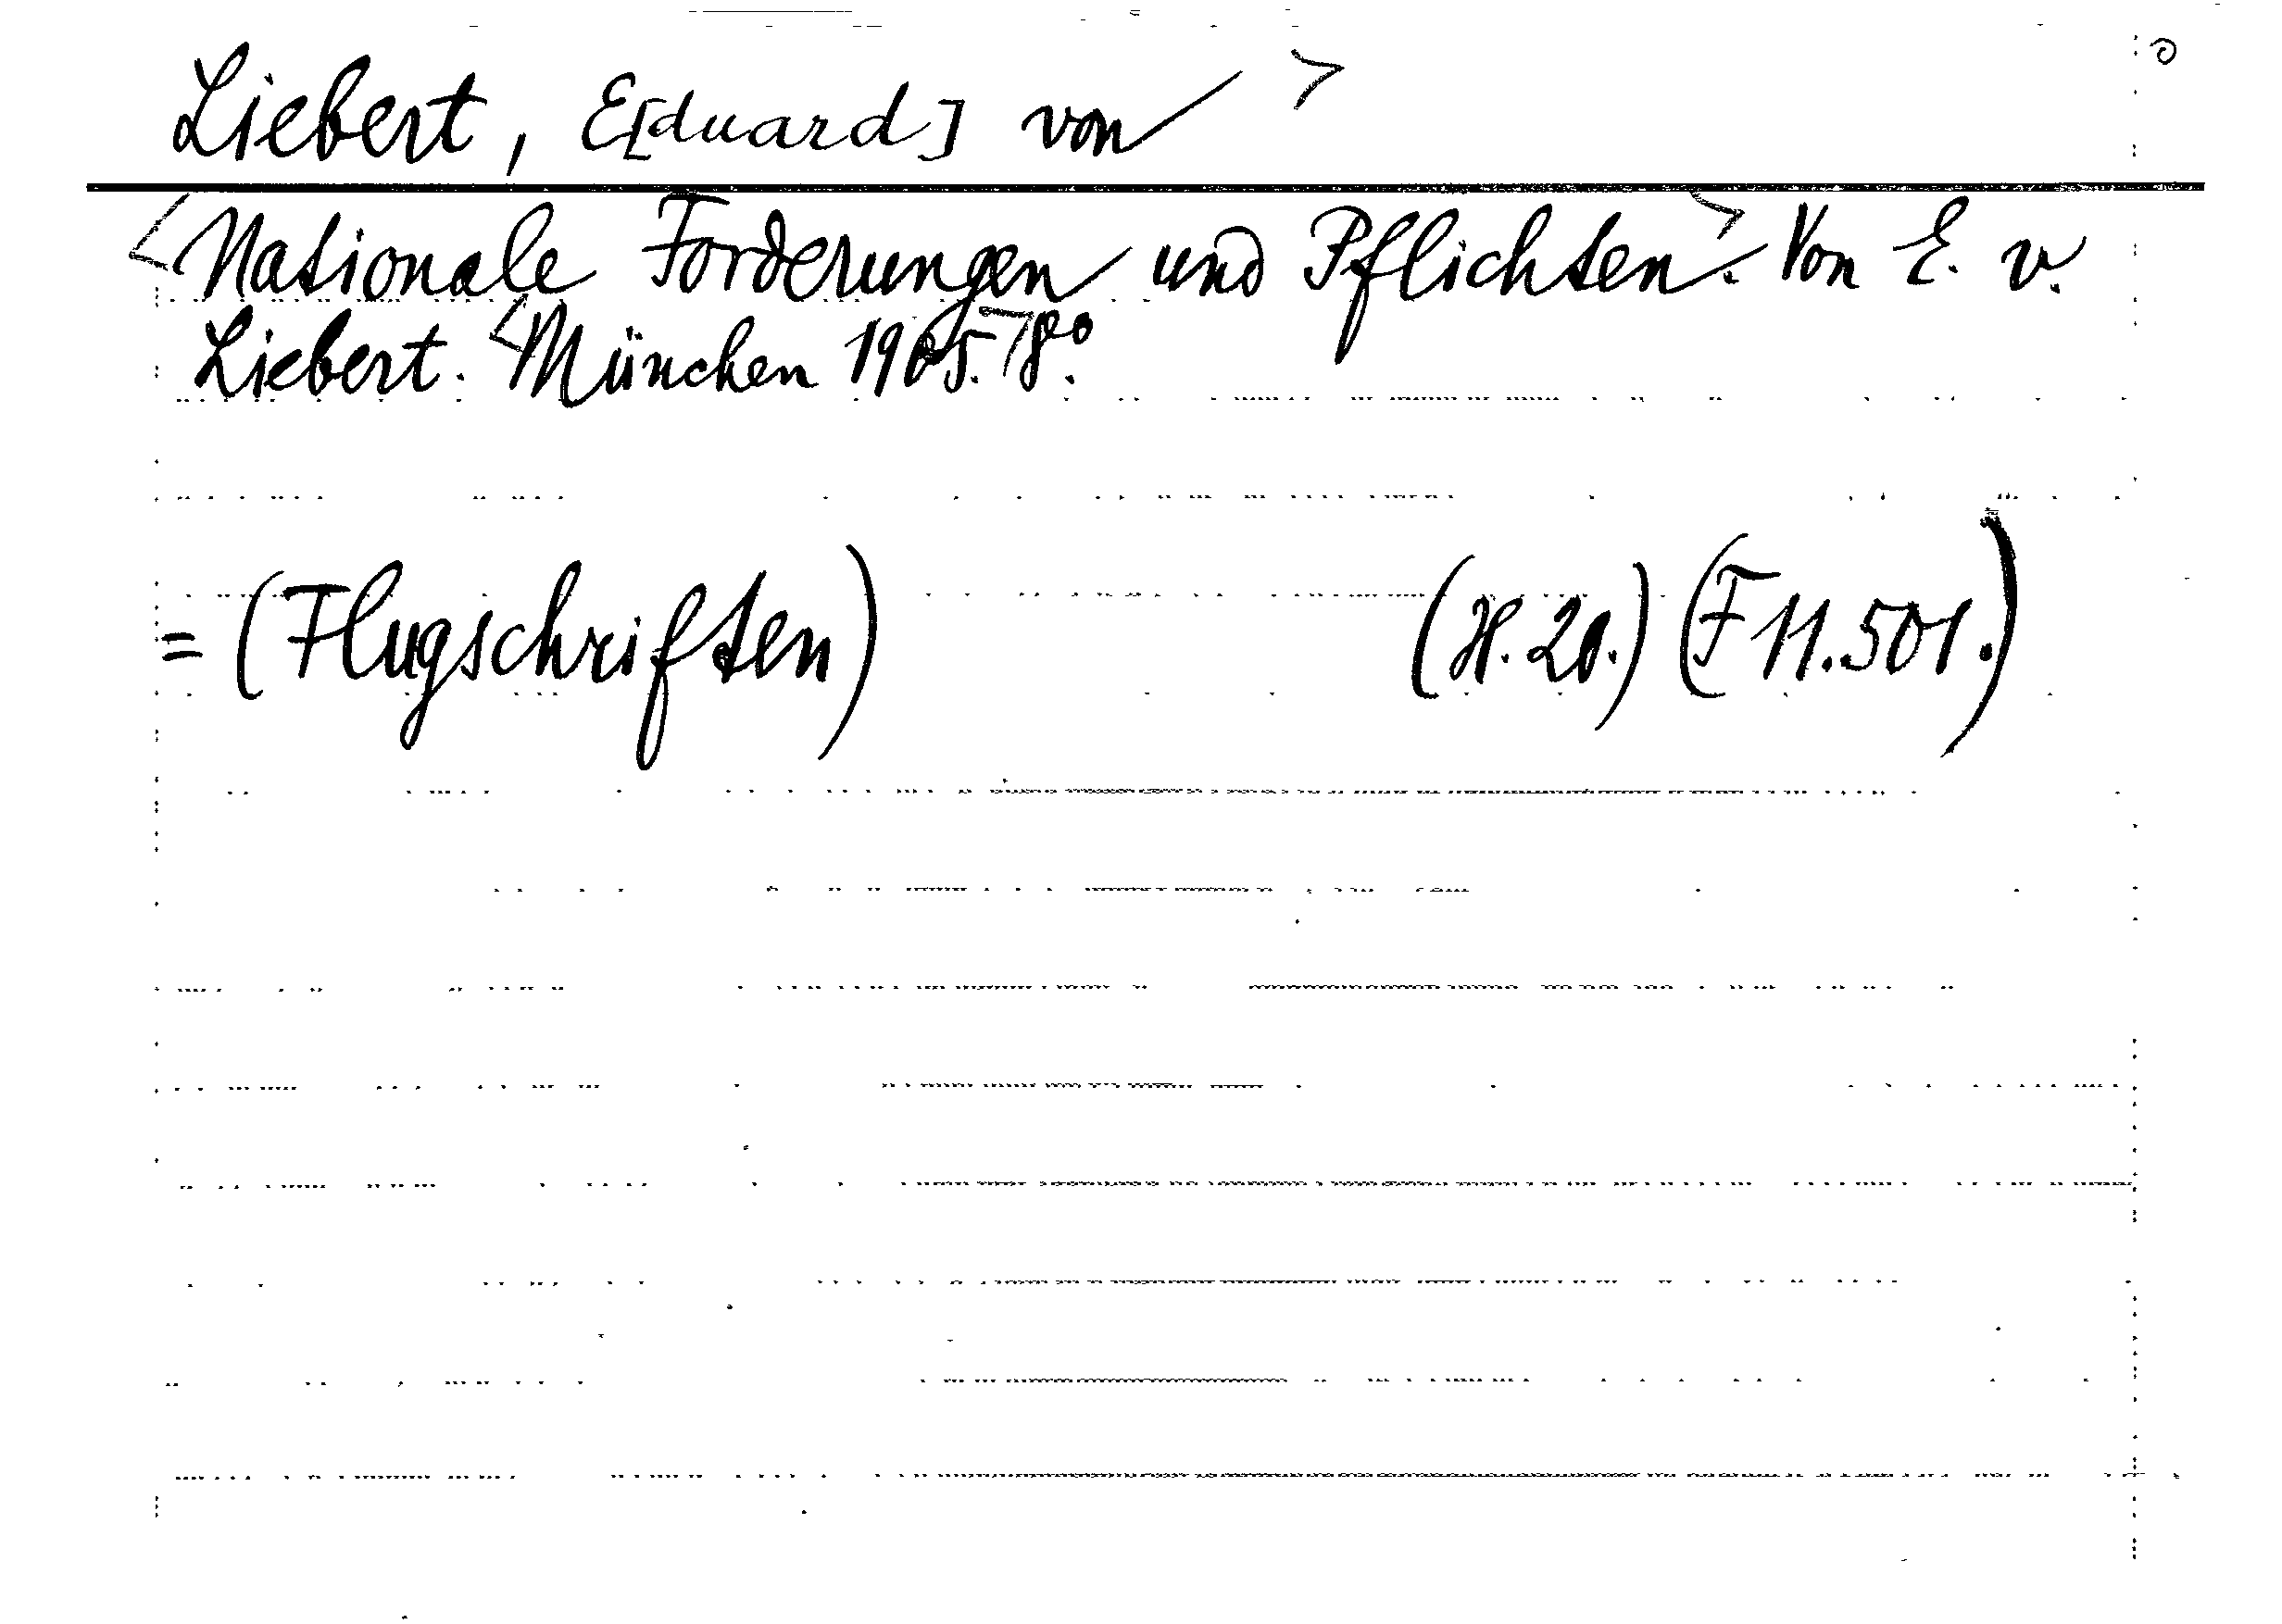 Liebert, E[duard] von >
<Nationale Forderungen und Pflichten>. Von E. v.
Liebert. <München 1905.> 8°.
= (Flugschriften) (H. 20.) (F 11.501.)